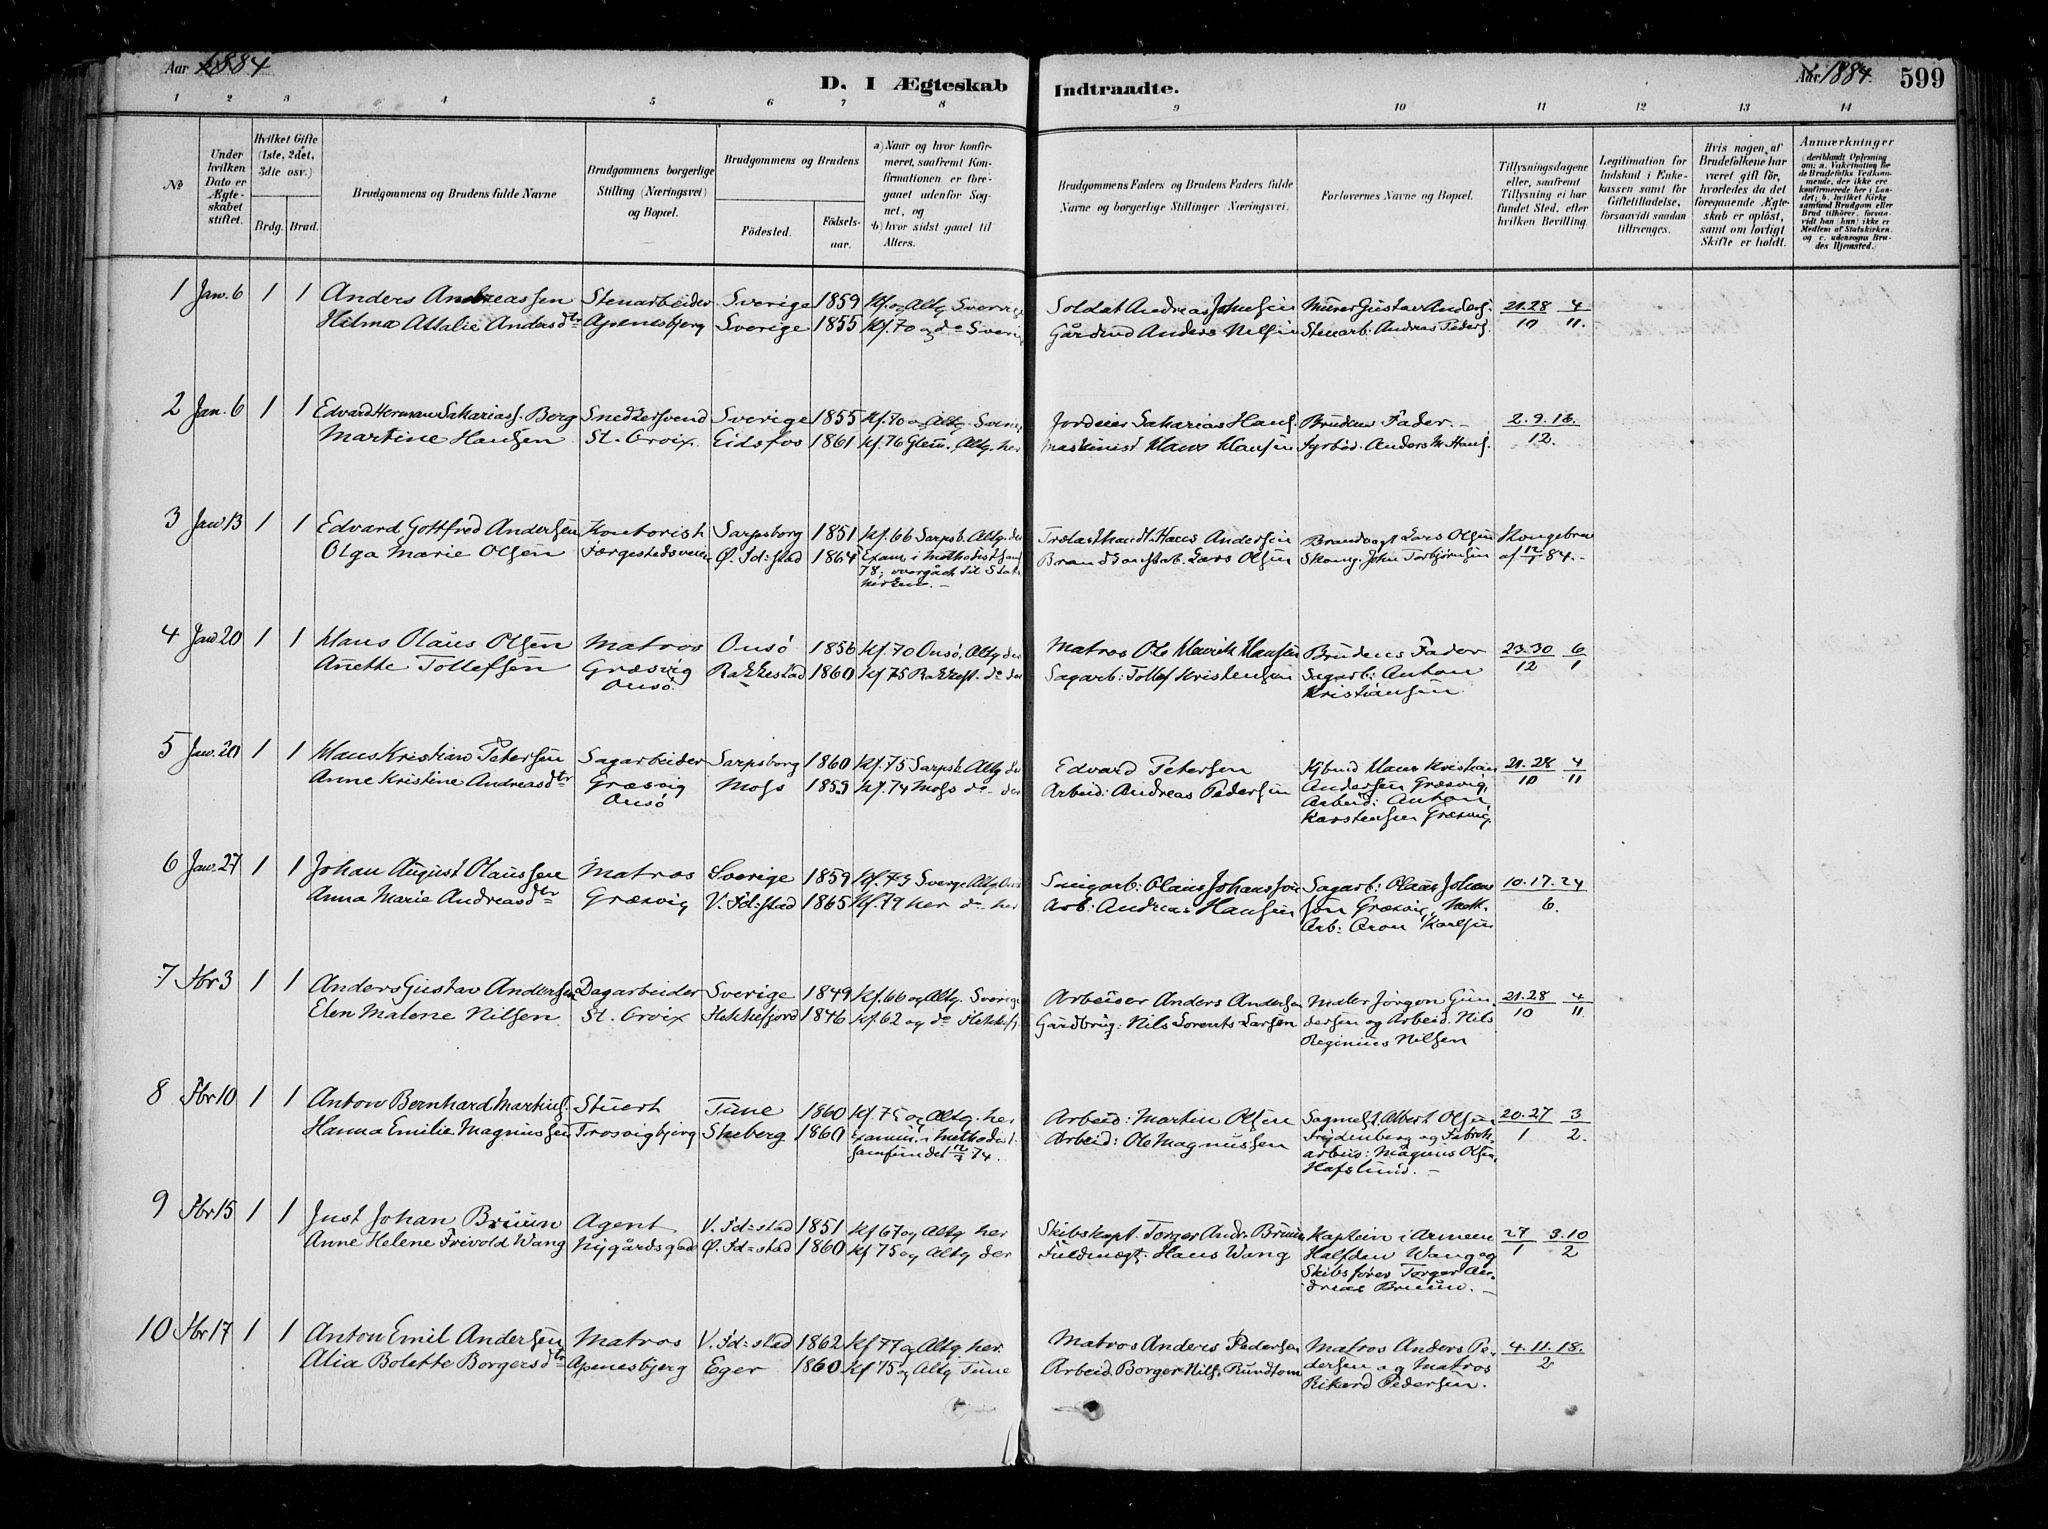 Aar 1884
D. I Ægteskab Indtraadte.
Aar 1884. 599
1 2 3 4 5 6 7 8 9 10 11 12 13 14
№
Under hvilken Dato er Ægteskabet stiftet.
Hvilket Gifte (1ste, 2det, 3die osv.)
Brdg. Brud.
Brudgommens og Brudens fulde Navne
Brudgommens borgerlige Stilling (Næringsvei) og Bopæl.
Brudgommens og Brudens
Födested. Födselsaar.
a) Naar og hvor konfirmeret, saafremt Konfirmationen er foregaaet udenfor Sognet, og
b) hvor sidst gaaet til Alters.
Brudgommens Faders og Brudens Faders fulde Navne og borgerlige Stillinger (Næringsvei).
Forlovernes Navne og Bopæl.
Tillysningsdagene eller, saafremt Tillysning ei har fundet Sted, efter hvilken Bevilling.
Legitimation for Indskud i Enkekassen samt for Giftetilladelse, forsaavidt saadan tiltrænges.
Hvis nogen af Brudefolkene har været gift før, hvorledes da det foregaaende Ægteskab er oplöst, samt om lovligt Skifte er holdt.
Anmærkninger
(deriblandt Oplysning om: a. Vakcination for de Brudefolks Vedkommende, der ikke ere konfirmerede her i Landet; b. hvilket Kirkesamfund Brudgom eller Brud tilhörer, forsaavidt han (hun) ikke er Medlem af Statskirken, og c. udensogns Brudes Hjemsted.
1 Jan. 6 1 1 Anders Andreassen Stenarbeider Sverige 1859 Kf. og Altg. Sverige Soldat Andreas Johnsen Murer Gustav Anders. 21.28 4
Hilma Attalie Andersdtr Apenesbjerg Sverige 1855 Kf. 70 og do Sverig Gårdmd Anders Nilsen Stenarb. Andreas Peders. 10 11.
2 Jan. 6 1 1 Edvard Herman Sakariass. Berg Snedkersvend Sverige 1855 Kf. 70 og Altg. Sverig Jordeier Sakarias Hans. Brudens Fader. – 2.9.16.
Martine Hansen St. Croix Eidsfos 1861 Kf. 76 Glem. Altg. her Maskinist Klaus Hansen Fyrbød. Anders M. Hans. 12.
3 Jan 13 1 1 Edvard Gottfred Andersen Kontorist Sarpsborg 1851 Kf. 66 Sarpsb. Altg. der Trælasthandl. Hans Andersen Brandvagt Lars Olsen Kongebrev
Olga Marie Olsen Færgestedsveien Ø. Fd=stad 1864 Exam. i Methodistsamf. Lars Olsen John Torbjørnsen af 12/1 84. –
78; overgået til Stats
kirken. –
4 Jan 20 1 1 Hans Olaus Olsen Matros Onsö 1856 Kf. 70 Onsö. Altg der Matros Ole Henrik Hansen Brudens Fader 23.30 6
Anette Tollefsen Græsvig Rakkestad 1860 Kf. 75 Rakkest. do der Sagarb: Tollef Kristensen Sagarb: Anton 12 1
Onsö. Kristiansen
5 Jan. 20 1 1 Hans Kristian Petersen Sagarbeider Sarpsborg 1860 Kf. 75 Sarpsb. Altg der Edvard Petersen Hans Kristian 21.28 4
Anne Kristine Andreasdtr Græsvig Moss 1859 Kf. 74 Moss do der Arbeid: Andreas Pedersen Andersen Græsvig, 10 11
Onsö Arbeid: Anton
Karstensen Græsvig.
6 Jan. 27 1 1 Johan August Olaussen Matros Sverige 1859 Kf. 73 Sverge Altg Onsö Sagarb: Olaus Johansson Sagarb: Olaus Johans 10.17.24
Anna Marie Andreasdtr Græsvig V. Fd=stad 1865 Kf. 79 her do her Arb: Andreas Hansen son Græsvig, 6.
Arb: Aron Karlsen
7 Fbr 3 1 1 Anders Gustav Andersen Dagarbeider Sverige 1849 Kf. 66 og Altg. Sverige Arbeider Anders Andersen Maler Jørgen Gun- 21.28 4
Elen Malene Nilsen St. Croix Flekkefjord 1846 Kf. 62 og do Flekkef. Gårdbrug: Nils Lorents Larsen dersen og Arbeid. Nils 10 11
Reginius Nilsen
8 Fbr 10 1 1 Anton Bernhard Martins. Stuert Tune 1860 Kf. 75 og Altg. her Arbeid: Martin Olsen Sagmest. Albert Olsen 20.27 3
Hanna Emilie Magnussen Trosvigbjerg Skeberg 1860 Examin. i Methodist Arbeid: Ole Magnussen Frydenberg og Fabrik- 1 2.
samfundet 12/7 74. arbeid: Magnus Olsen,
Hafslund. –
9 Fbr 15 1 1 Just Johan Bruun Agent V. Fd=stad 1851 Kf 67 og Altg her Skibskapt. Torger Andr. Bruun Kaptein i Armeen 27 3.10
Anne Helene Frivold Wang Nygårdsgad Ø. Fd=stad 1860 Kf 75 og Altg der Fuldmægt. Hans Wang Halfdan Wang og 1 2
Skibsfører Torger An-
dreas Bruun. –
10 Fbr 17 1 1 Anton Emil Andersen Matros V. Fd=stad 1862 Kf 77 og Altg. her. Matros Anders Pedersen Matros Anders Pe- 4.11.18.
Alia Bolette Borgersdtr Apenesbjerg Eger 1860 Kf 75 og Altg Tune Arbeid. Borger Nils. Rundtom dersen og Matros 2
Rikard Pedersen.